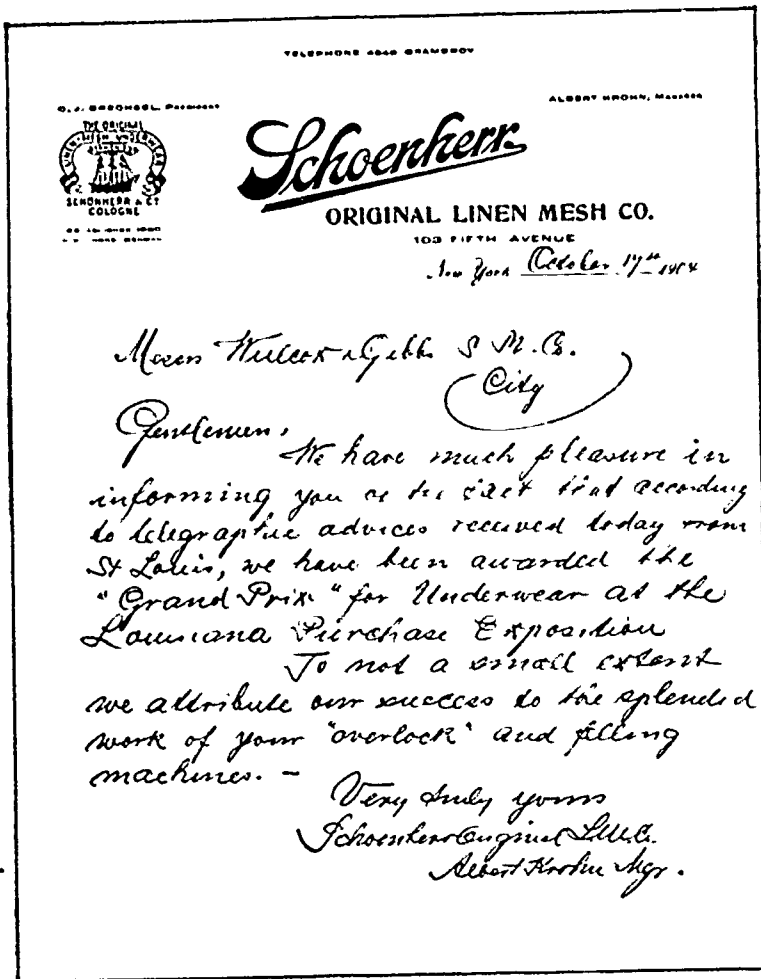 TELEPHONE 4640 GRAMERCY
ALBERT KROHN, MANAGER
THE ORIGINAL
LINEN-MESH UNDERWEAR
SCHÖNHERR & CY
COLOGNE
Schoenherr
ORIGINAL LINEN MESH CO.
103 FIFTH AVENUE
New York October 17th 1904
Messrs Willcox & Gibbs S. M. Co.
City
Gentlemen,
We have much pleasure in
informing you of the fact that according
to telegraphic advices received today from
St Louis, we have been awarded the
"Grand Prix" for Underwear at the
Louisiana Purchase Exposition
To not a small extent
we attribute our success to the splended
work of your "overlock" and felling
machines. –
Very truly yours
Schoenherr Original L.M.Co.
Albert Krohn Mgr.